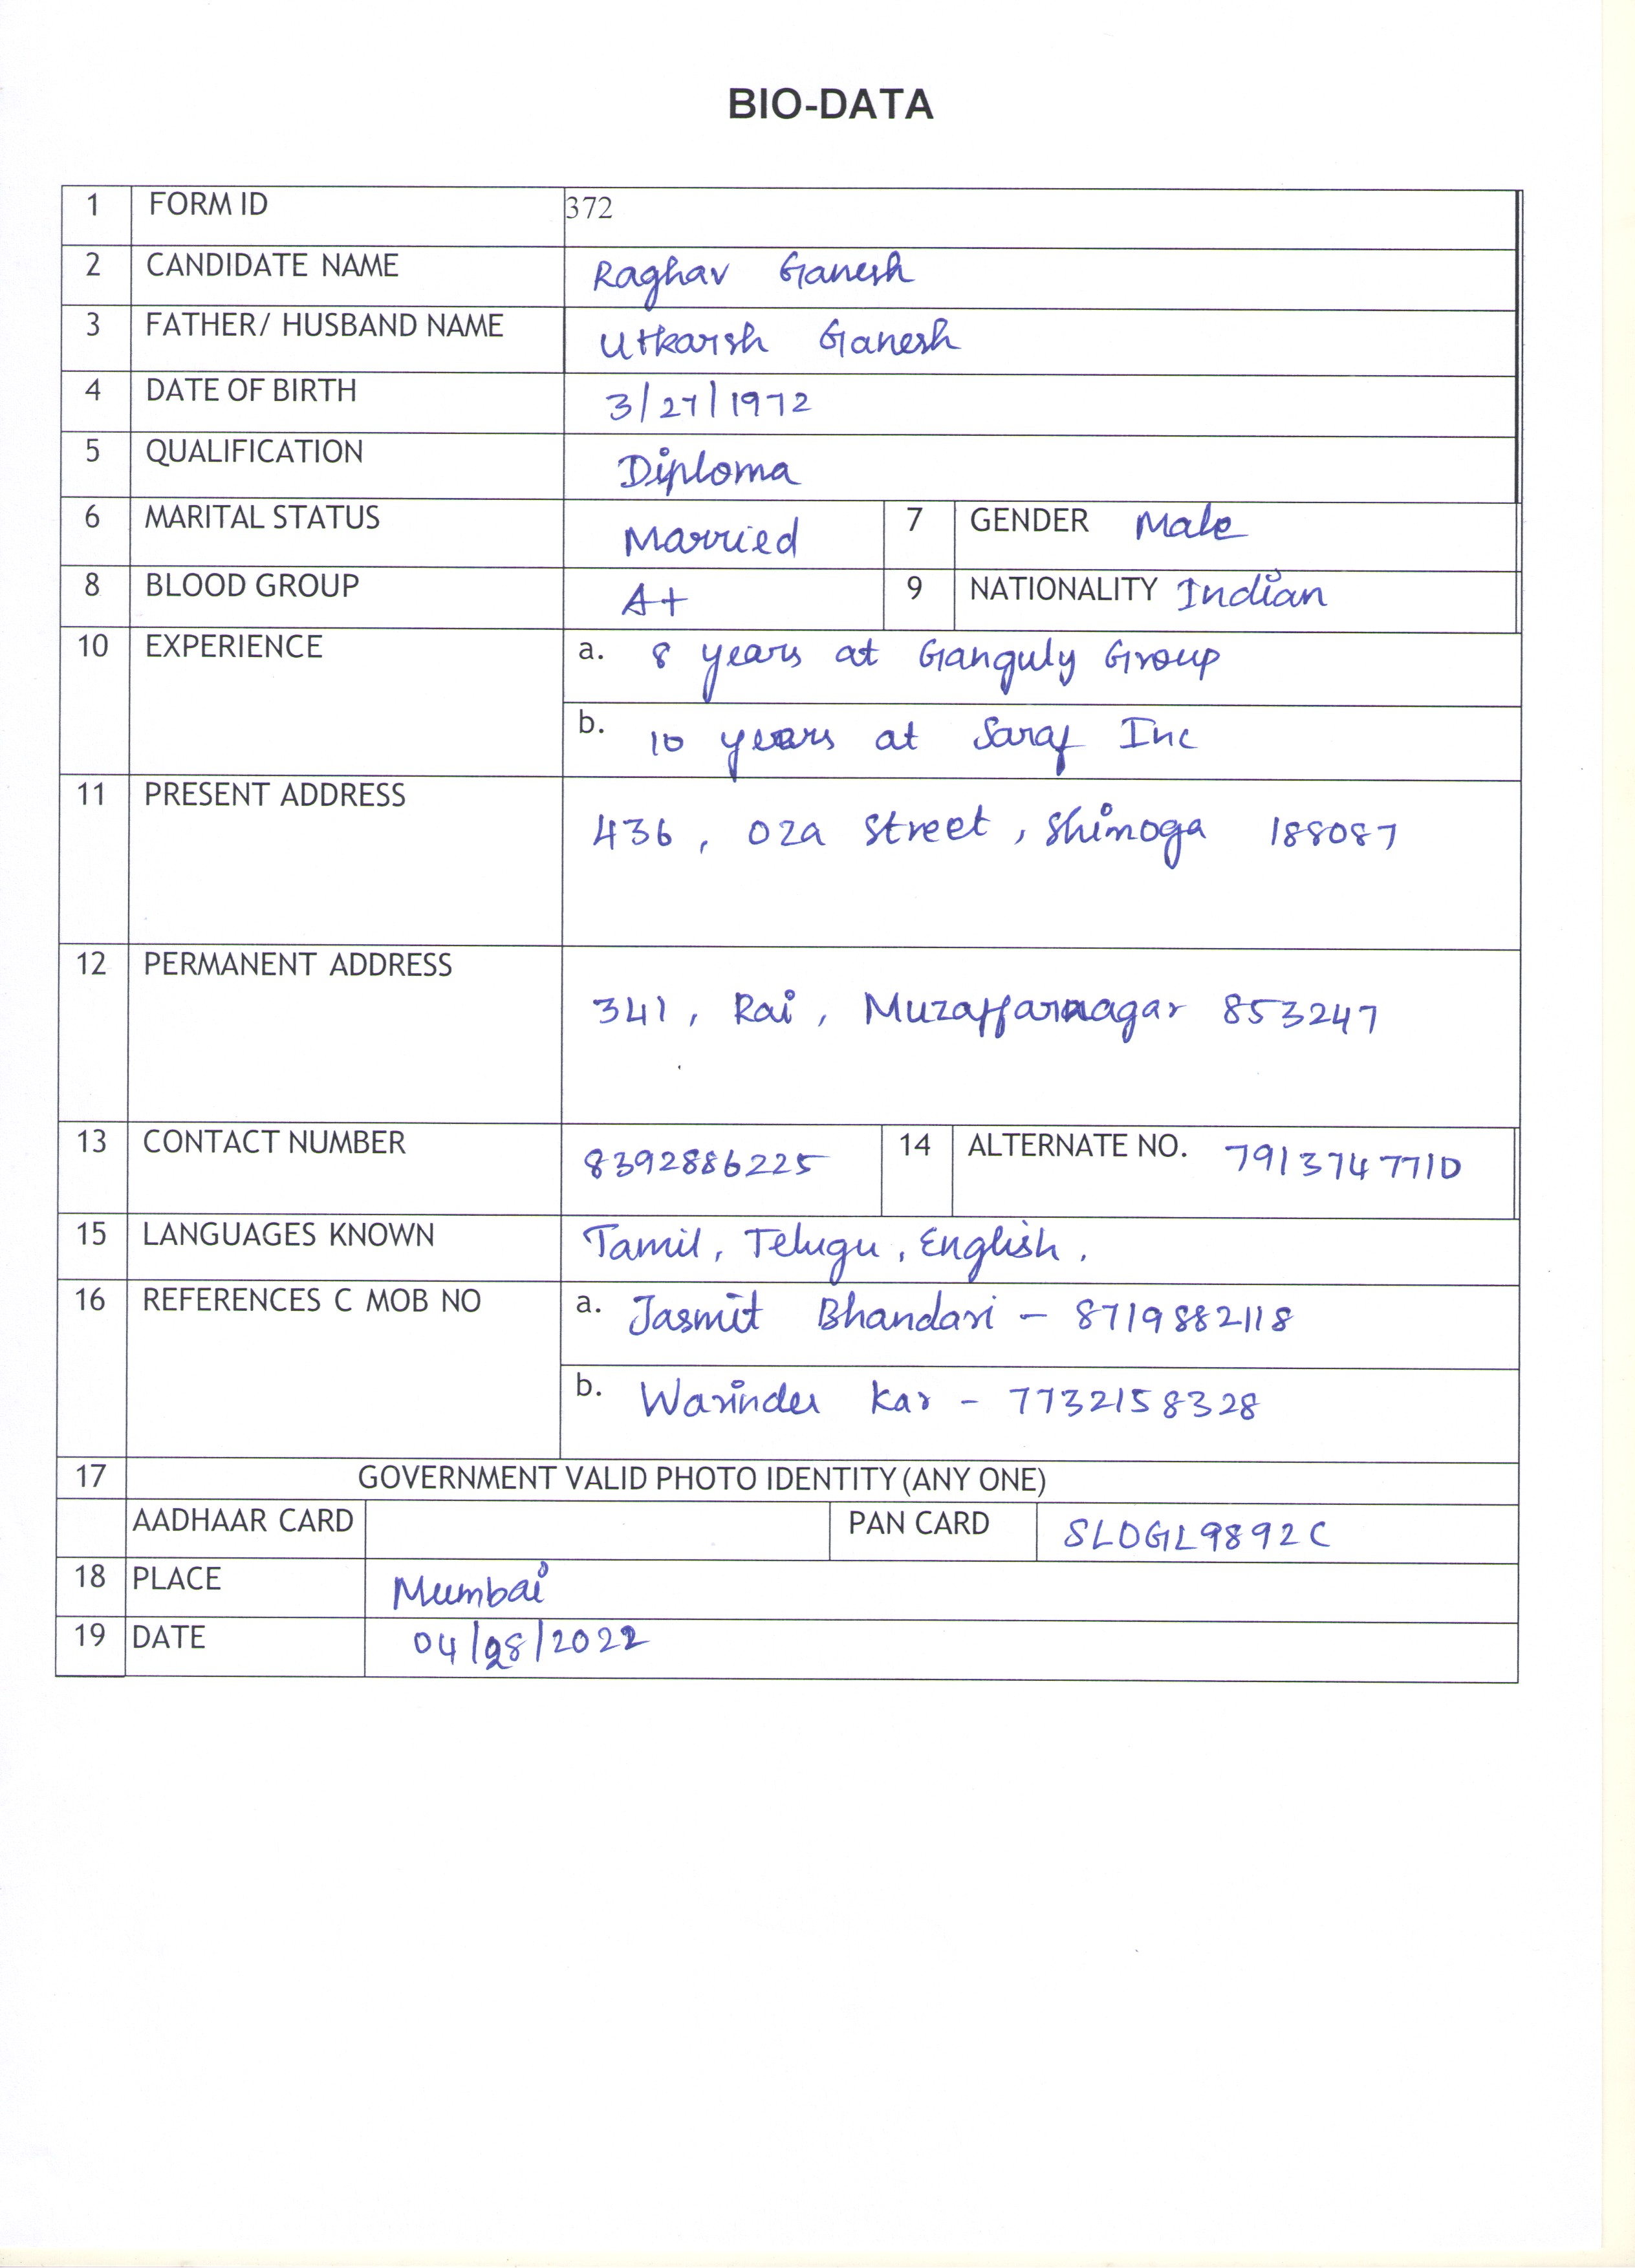 BIO-DATA
1 FORM ID 372
2 CANDIDATE NAME Raghav Ganesh
3 FATHER/ HUSBAND NAME Utkarsh Ganesh
4 DATE OF BIRTH 3/27/1972
5 QUALIFICATION Diploma
6 MARITAL STATUS Married 7 GENDER Male
8 BLOOD GROUP A+ 9 NATIONALITY Indian
10 EXPERIENCE a. 8 years at Ganguly Group
b. 10 years at Saraf Inc
11 PRESENT ADDRESS 436, Oza Street, Shimoga 188087
12 PERMANENT ADDRESS 341, Rai, Muzaffarnagar 853247
13 CONTACT NUMBER 8392886225 14 ALTERNATE NO. 7913747710
15 LANGUAGES KNOWN Tamil, Telugu, English.
16 REFERENCES C MOB NO a. Jasmit Bhandari - 8719882118
b. Warinder Kar - 7732158328
17 GOVERNMENT VALID PHOTO IDENTITY (ANY ONE)
AADHAAR CARD PAN CARD SLOGL9892C
18 PLACE Mumbai
19 DATE 04/28/2022